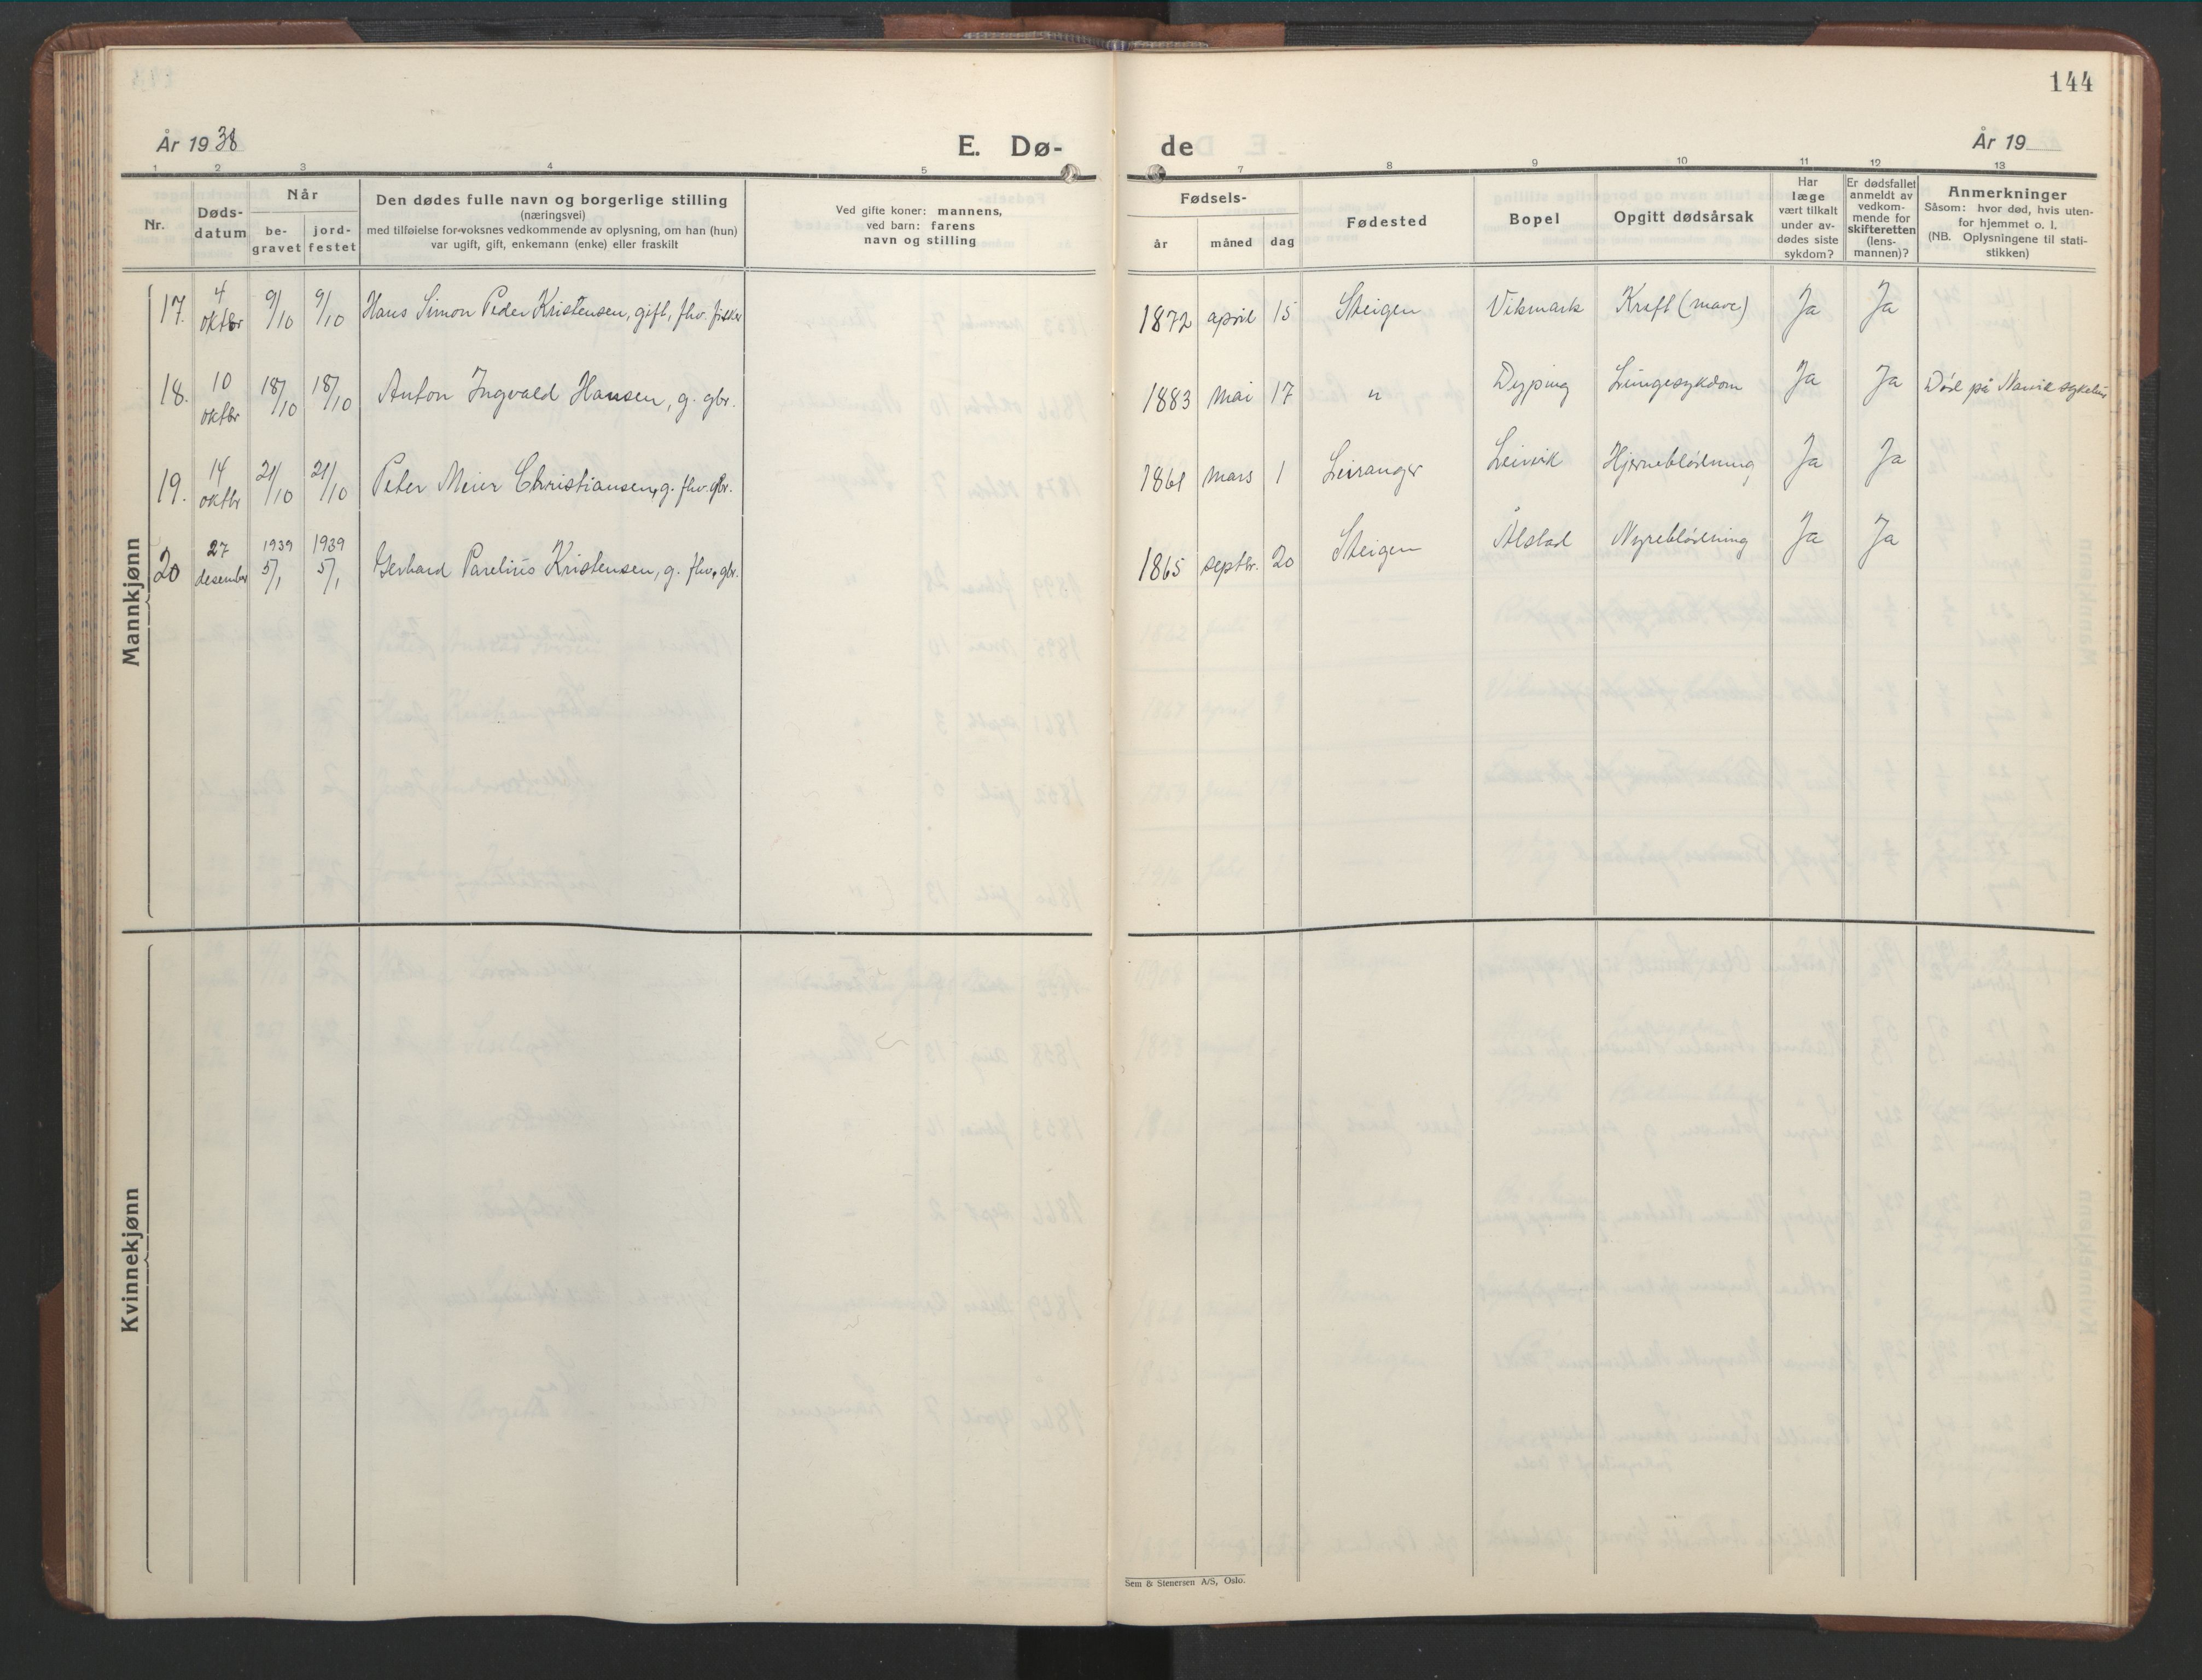 144
År 1938
E. Dø-
de
År 19
1 2 3 4 5
7 8 9 10 11 12 13
Nr.
Døds-
datum
Når
be-
gravet
jord-
festet
Den dødes fulle navn og borgerlige stilling
(næringsvei)
med tilføielse for voksnes vedkommende av oplysning, om han (hun)
var ugift, gift, enkemann (enke) eller fraskilt
Ved gifte koner: mannens,
ved barn: farens
navn og stilling
Fødsels-
år
måned
dag
Fødested
Bopel
Opgitt dødsårsak
Har
læge
vært tilkalt
under av-
dødes siste
sykdom?
Er dødsfallet
anmeldt av
vedkom-
mende for
skifteretten
(lens-
mannen)?
Anmerkninger
Såsom: hvor død, hvis uten-
for hjemmet o. l.
(NB. Oplysningene til stati-
stikken)
Mannkjønn
17. 4 oktbr 9/10 9/10 Hans Simon Peder Kristensen, gift, fhv. fisker 1872 april 15 Steigen Vikmark Kreft (mave) Ja Ja
18. 10 oktbr 18/10 18/10 Anton Ingvald Hansen, g. gbr. 1883 mai 17 " Dyping Lungesykdom Ja Ja Død på Narvik sykehus
19. 14 oktbr 21/10 21/10 Peter Meier Christiansen, g. fhv. gbr. 1861 mars 1 Leiranger Leivik Hjerneblødning Ja Ja
20 27 desember 1939 5/1 1939 5/1 Gerhard Parelius Kristensen, g. fhv. gbr. 1865 septbr. 20 Steigen Ålstad Nyreblødning Ja Ja
Kvinnekjønn
Sem & Stenersen A/S, Oslo.